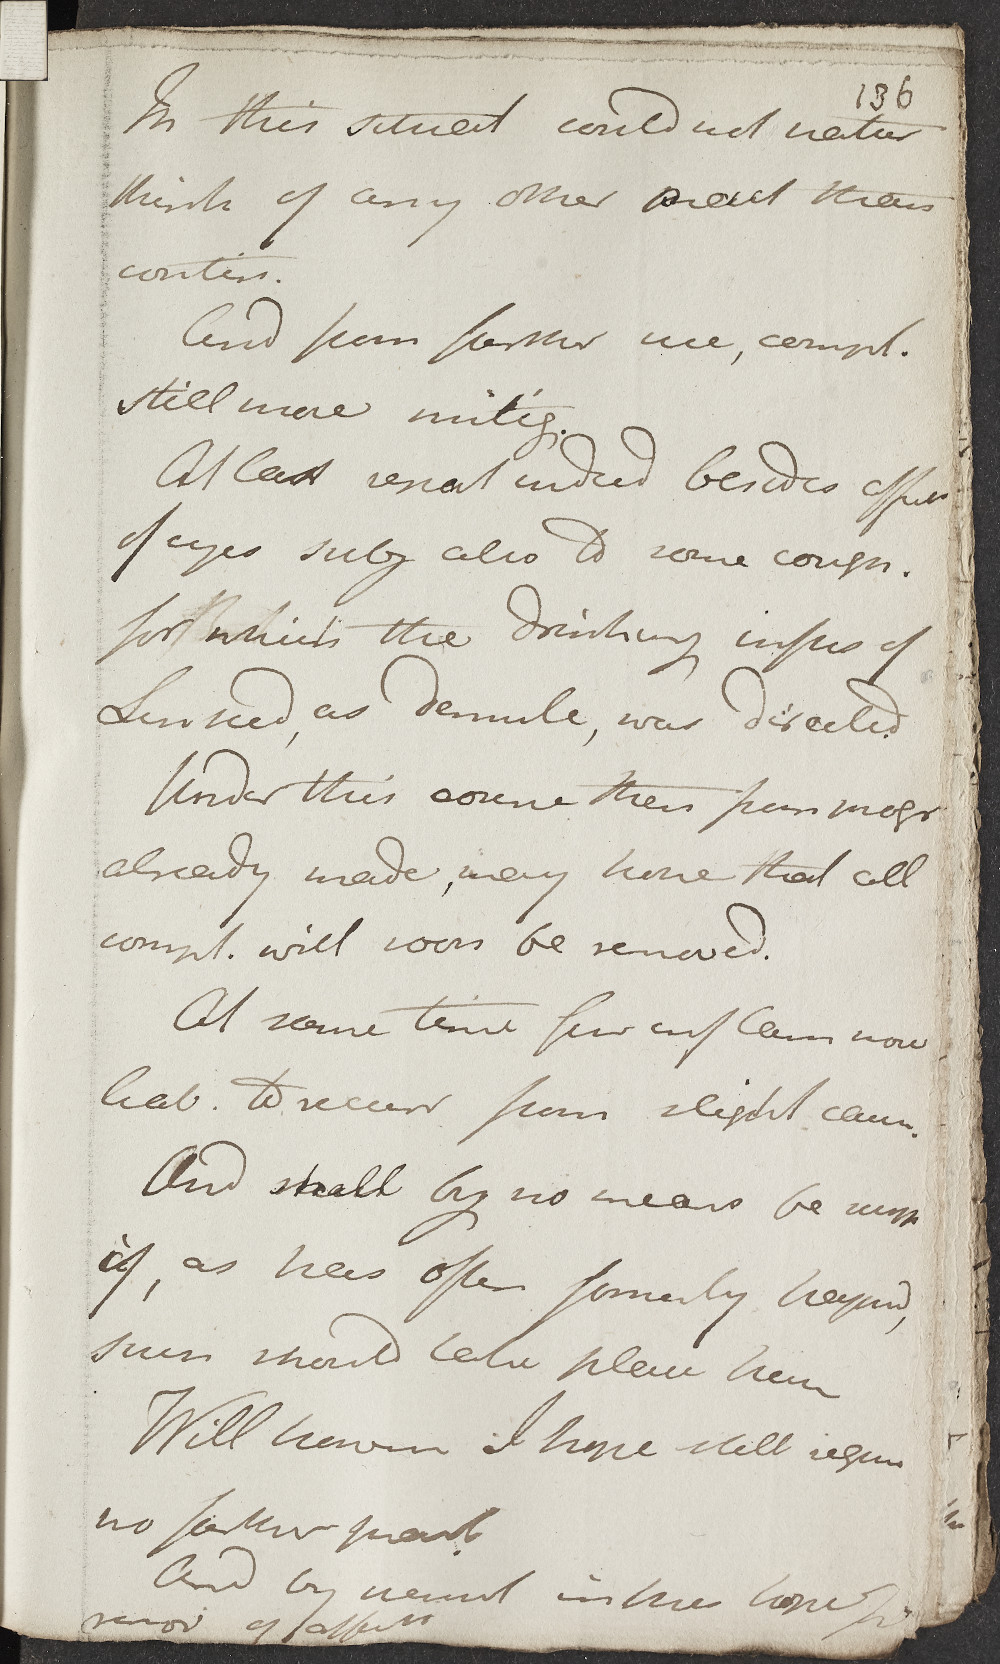 136
In this situat could not natur
think of any other pract than
contin.
And from farther use, compl.
still more mitig.
At last repeat indeed besides affect
of eyes subj also to some cough.
for which the drinking infus of
Linseed, as demulc, was directed
Under this course then from progr
already made, may hope that all
compl. will soon be removed.
At same time few inflam now
liab. to recurr from slight caus.
And shall by no means be surpr
if, as has often formerly happend,
such should take place here
Will however I hope still requir
no farther pract.
And by next in his hope
remov of affect